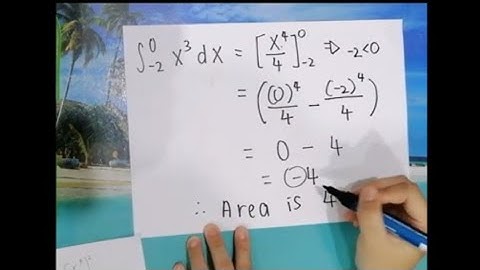 ∫₋₂⁰ x³ dx = [x⁴/4]₋₂⁰ ⇒ -2<0
= ((0)⁴/4 - (-2)⁴/4)
= 0 - 4
= -4
∴ Area is 4